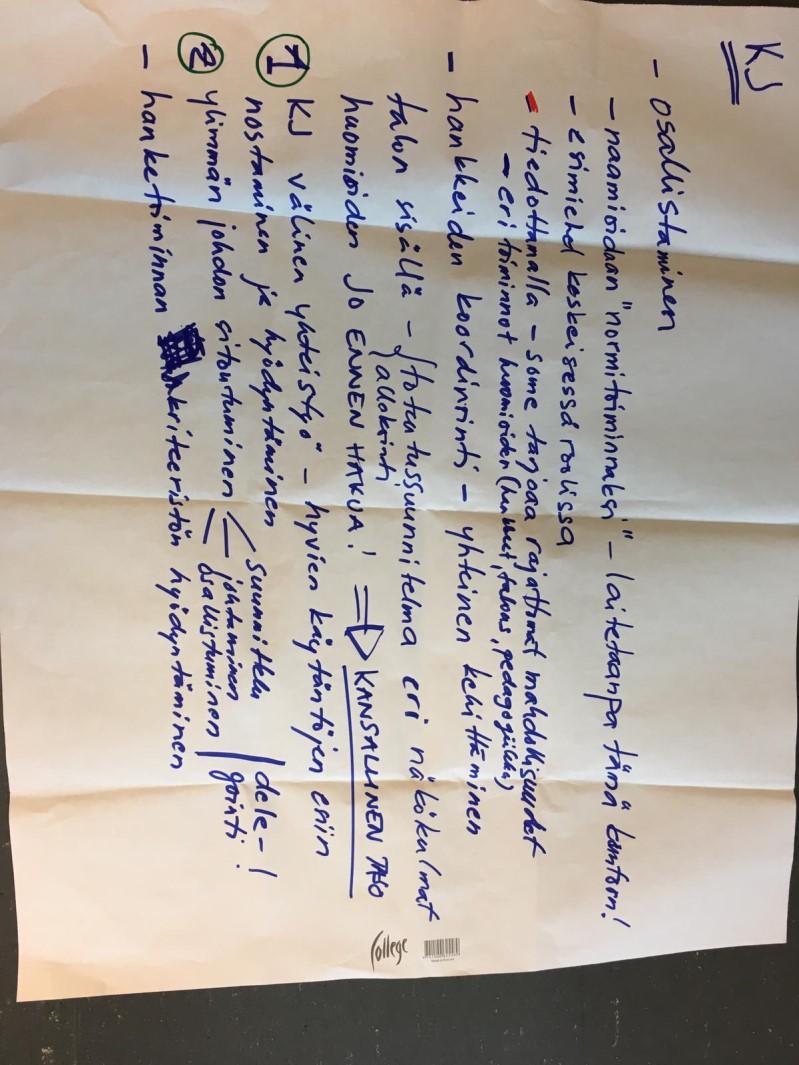 KJ
- osallistaminen
- naamioidaan "normitoiminnaksi" - laitetaanpa tämä kuntoon!
- esimiehet keskeisessä roolissa
- tiedottamalla - some tarjoaa rajattomat mahdollisuudet
- eri toiminnot huomioiden (, talous, pedagogiikka)
- hankkeiden koordinointi - yhteinen kehittäminen
talon sisällä - { totutussuunnitelma eri näkökulmat
allokointi
huomioiden JO ENNEN HAKUA! ⇒ KANSALLINEN TASO
① KJ välinen yhteistyö - hyvien käytäntöjen esiin
nostaminen ja hyödyntäminen
② ylimmän johdon sitoutuminen
suunnittelu
johtaminen
osallistuminen
dele-!
gointi!
- hanketoiminnan kriteeristön hyödyntäminen
College